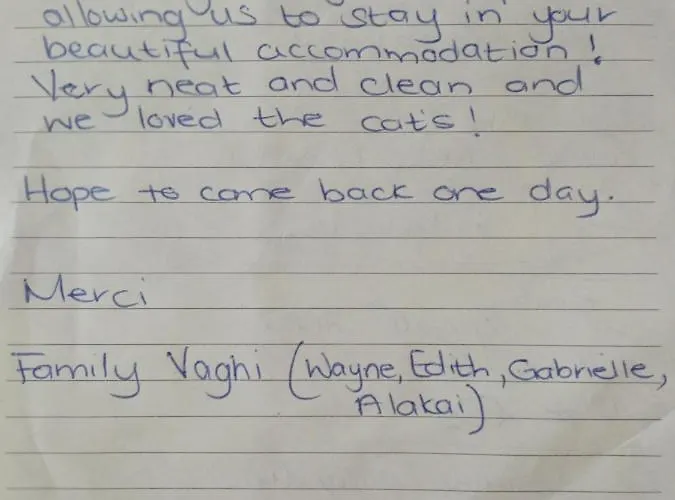 allowing us to stay in your
beautiful accommodation!
Very neat and clean and
we loved the cats!
Hope to come back one day.
Merci
Family Vaghi (Wayne, Edith, Gabrielle,
Alakai)